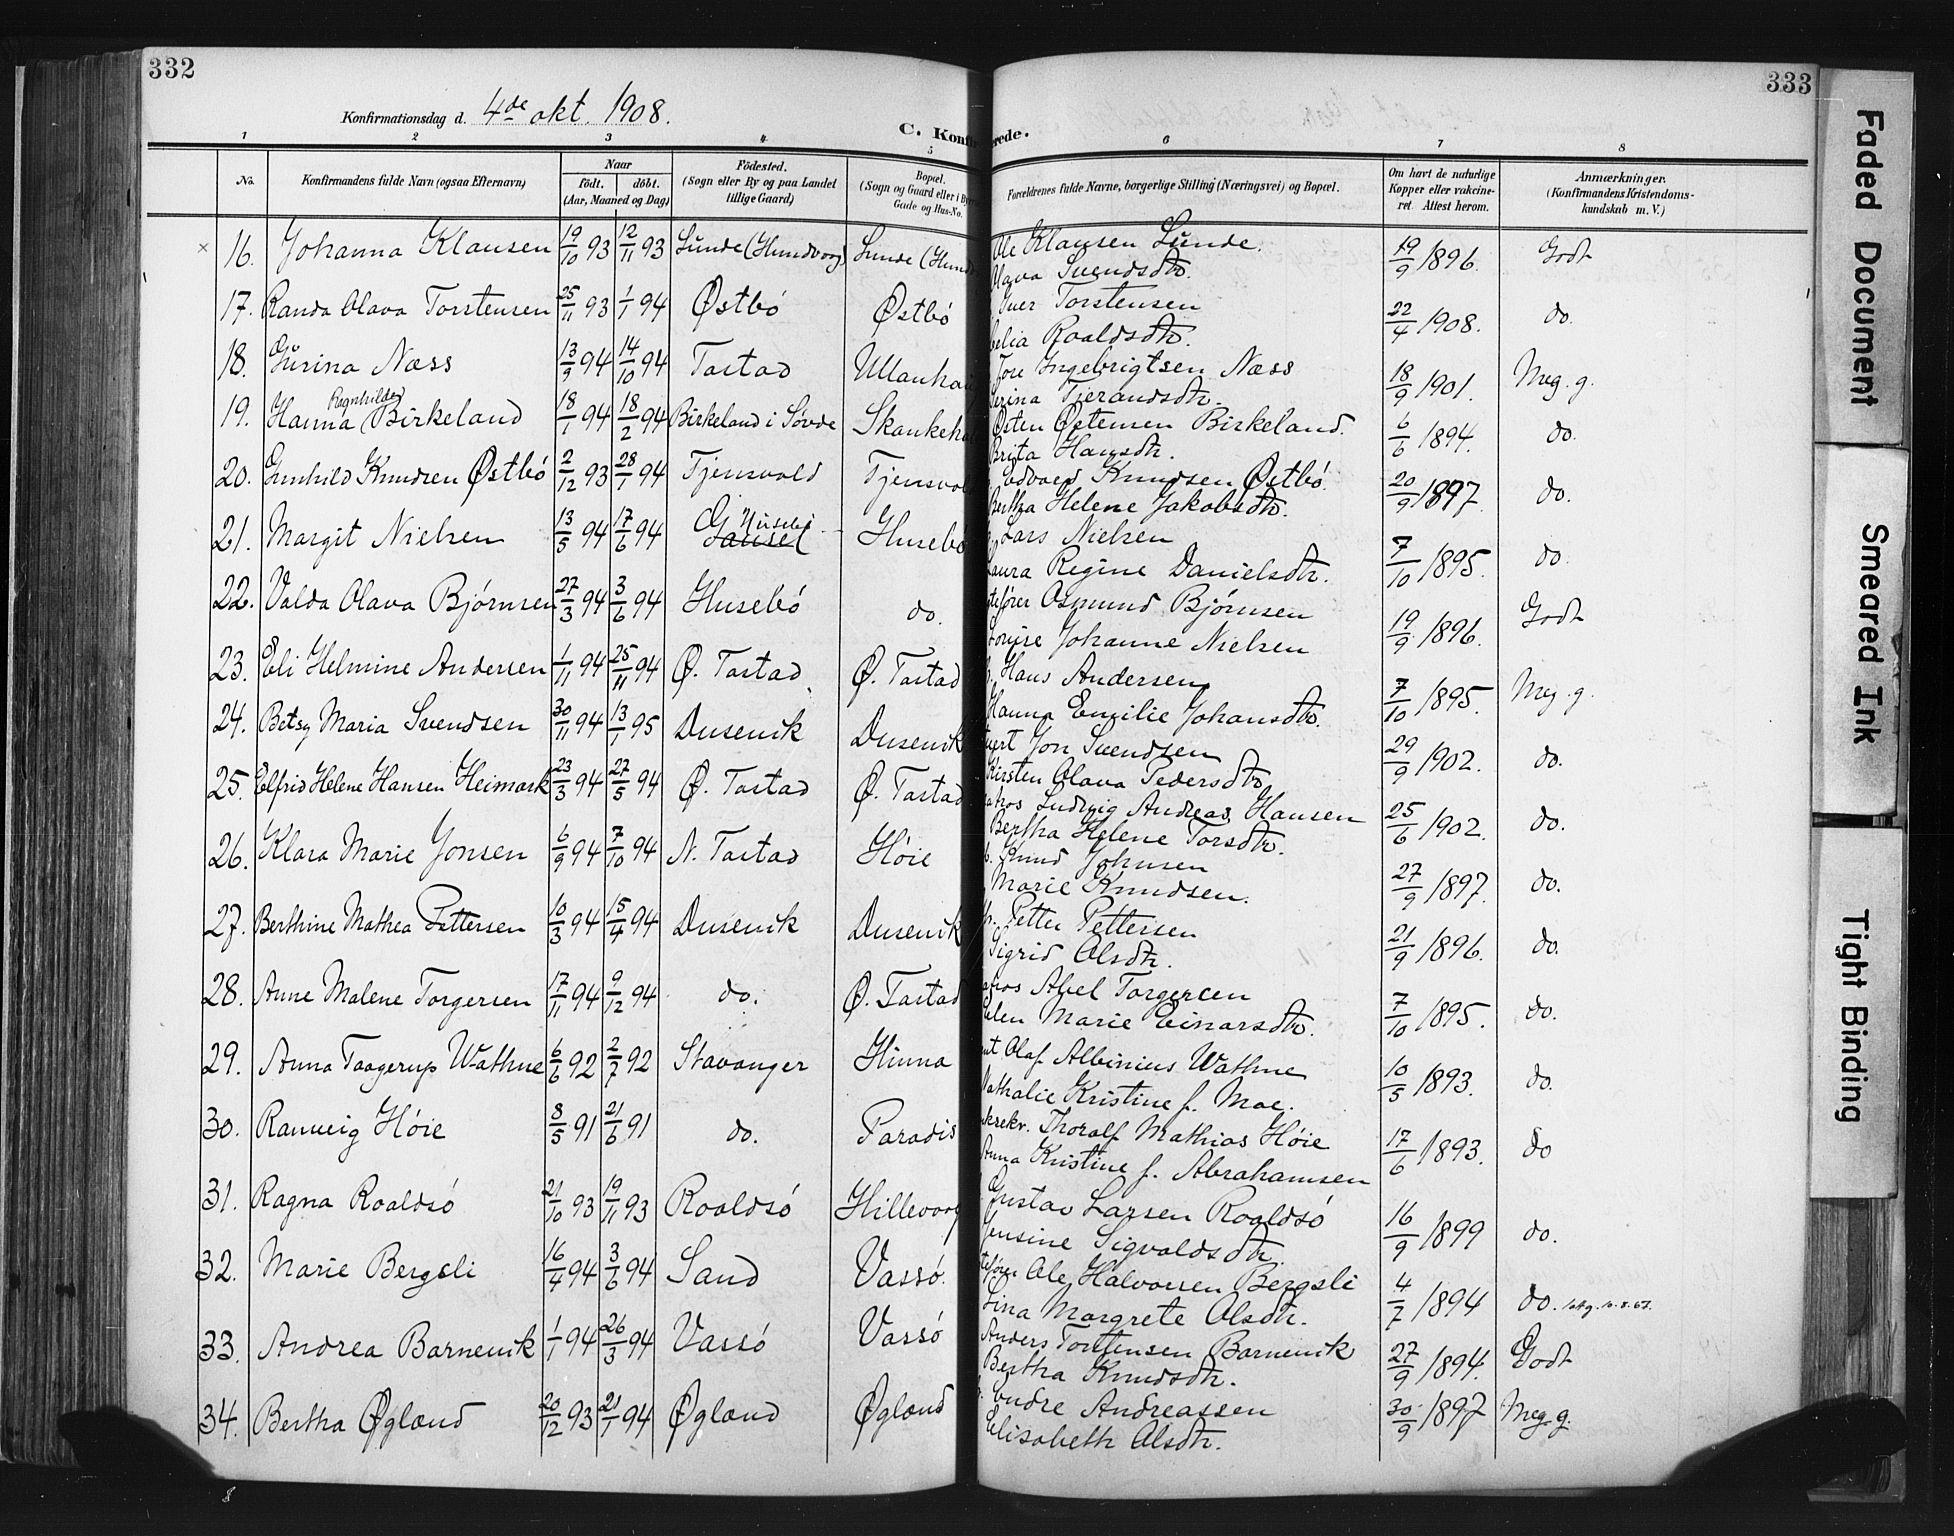 332
333
Konfirmationsdag d. 4de okt. 1908.
C. Konfirmerede.
1 2 3 4 5 6 7 8
No. Konfirmandens fulde Navn (ogsaa Efternavn) Naar födt. döbt. (Aar, Maaned og Dag) Födested. (Sogn eller By og paa Landet tillige Gaard) Bopæl. (Sogn og Gaard eller i Gade og Hus-No. Forældrenes fulde Navne, borgerlige Stilling (Næringsvei) og Bopæl. Om havt de naturlige Kopper eller vakcineret. Attest herom. Anmærkninger. (Konfirmandens Kristendomskundskab m. V.)
× 16. Johanna Klausen 19/10 93 12/11 93 Lunde (Hundvaag) Lunde (Hund Ole Klausen Lunde. 19/9 1896. Godt
Olava Svendsdtr.
17. Randa Olava Torstensen 25/11 93 1/1 94 Østbö Østbö Iver Torstensen 22/4 1908. do.
Roaldsdtr.
18. Gurina Næss 13/9 94 14/10 94 Tastad Ullanhau Tore Ingebrigtsen Næss 18/9 1901. Meg. g.
Serina Tjerandsdtr.
19. Hanna Ragnhilda Birkeland 18/1 94 18/2 94 Birkeland i Søvde Skankeho Østen Østensen Birkeland. 6/6 1894. do.
Brita Hansdtr.
20. Gunhild Knudsen Østbö 2/12 93 28/1 94 Tjensvold Tjensvol Edvard Knudsen Østbö. 20/9 1897. do.
Bertha Helene Jakobsdtr.
21. Margit Nielsen 13/5 94 17/6 94 Husebö Gausel Husebö Lars Nielsen 7/10 1895. do.
Laura Regine Danielsdtr.
22. Valda Olava Bjørnsen 27/3 94 3/6 94 Husebö do. Osmund Bjørnsen 19/9 1896. Godt
Louise Johanne Nielsen
23. Eli Helmine Andersen 1/11 94 25/11 94 Ø. Tastad Ø. Tastad Hans Andersen 7/10 1895. Meg. g.
Hanna Emilie Johansdtr.
24. Betsy Maria Svendsen 30/11 94 13/1 95 Dusevik Dusevik Jon Svendsen 29/9 1902. do.
Kirsten Olava Pedersdtr.
25. Elfrid Helene Hansen Heimark 23/3 94 27/5 94 Ø. Tastad Ø. Tastad Ludvig Andreas Hansen 25/6 1902. do.
Bertha Helene Torsdtr.
26. Klara Marie Jonsen 6/9 94 7/10 94 N. Tastad Höie Knud Johnsen 27/9 1897. do.
Marie Knudsen.
27. Berthine Mathea Pettersen 10/3 94 15/4 94 Dusevik Dusevik Petter Pettersen 21/9 1896. do.
Sigrid Olsdtr.
28. Anne Malene Torgersen 17/11 94 9/12 94 do. Ø. Tastad Abel Torgersen 7/10 1895. do.
Elen Marie Einarsdtr.
29. Anna Taagerup Wathne 6/6 92 2/7 92 Stavanger Hinna Olaf Albinius Wathne 10/5 1893. do.
Nathalie Kristine f. Moe.
30. Ranveig Höie 8/5 91 21/6 91 do. Paradis Thoralf Mathias Höie 17/6 1893. do
Anna Kristine f. Abrahamsen
31. Ragna Roaldsö 21/10 93 19/11 93 Roaldsö Hillevaag Gustav Larsen Roaldsö 16/9 1899 do.
Jensine Sigvaldsdtr.
32. Marie Bergsli 16/4 94 3/6 94 Sand Vassö. Ole Halvorsen Bergsli 4/7 1894 do.
Lina Margrete Olsdtr.
33. Andrea Barnevik 1/1 94 26/3 94 Vassö Vassö Anders Torstensen Barnevik 27/9 1894. Godt
Bertha Knudsdtr.
34. Bertha Øgland 20/12 93 21/1 94 Øgland Øgland Endre Andreassen 30/9 1897 Meg. g.
Elisabeth Olsdtr.
8
Faded Document
Smeared Ink
Tight Binding